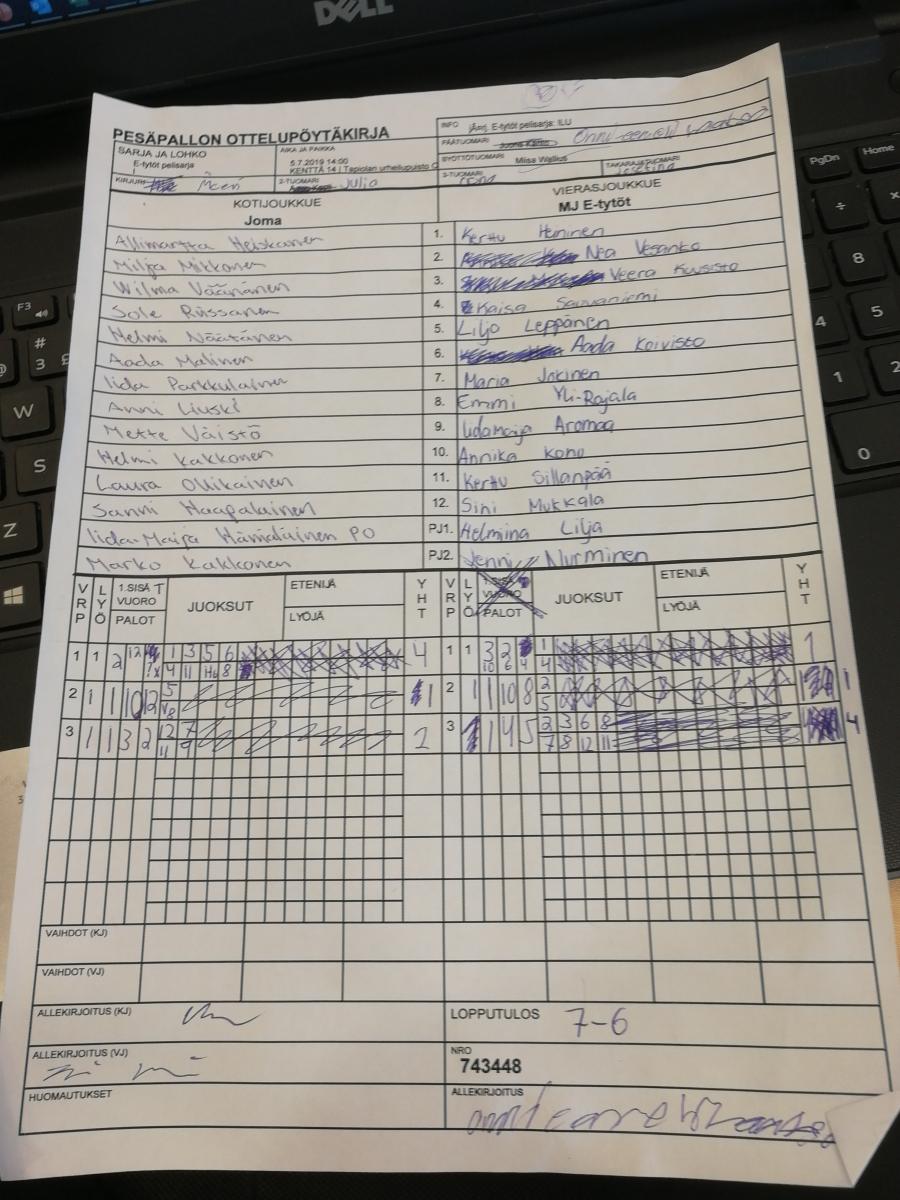 DELL
PgDn
Home
F3
#
3
£
W
S
Z
÷
8
4
5
1
2
0
PESÄPALLON OTTELUPÖYTÄKIRJA
INFO jAmj. E-tytöt pelisarja: ILU
PÄÄTUOMARI
SARJA JA LOHKO
E-tytöt pelisarja
AIKA JA PAIKKA
5.7.2019 14:00
KENTTÄ 14 | Tapiolan urheilupuisto
SYÖTTÖTUOMARI Miisa Wallius
TAKARAJATUOMARI
KIRJURI
2-TUOMARI Julia
3-TUOMARI
KOTIJOUKKUE
Joma
VIERASJOUKKUE
MJ E-tytöt
Allimartta Heiskanen 1. Kerttu Heninen
Milja Mikkonen 2. Nea Vesanto
Wilma Väänänen 3. Veera Kuusisto
Sole Riissanen 4. Kaisa Savaniemi
Helmi Näätänen 5. Lilja Leppänen
Aada Malinen 6. Aada Koivisto
Iida Parkkulainen 7. Maria Jokinen
Anni Liuski 8. Emmi Yli-Rajala
Mette Väistö 9. Iidamaija Aromaa
Helmi Kakkonen 10. Annika Kono
Laura Ollikainen 11. Kerttu Sillanpää
Sanni Haapalainen 12. Sini Mukkala
Iida-Maija Hämäläinen PO PJ1. Helmiina Lilja
Marko Kakkonen PJ2. Jenni Nurminen
VRP LYÖ 1.SISÄ T VUORO PALOT JUOKSUT ETENIJÄ LYÖJÄ YHT VRP LYÖ 1.SISÄ VUORO PALOT JUOKSUT ETENIJÄ LYÖJÄ YHT
1 1 2 12 1 3 5 6 4 1 1 3 2 1 1
4 11 8 10 6 4 4
2 1 1 10 12 5 1 2 1 1 10 8 2 1
8 5
3 1 1 3 2 12 7 2 3 1 1 4 5 2 3 6 8 4
11 9 7 8 12 11
VAIHDOT (KJ)
VAIHDOT (VJ)
ALLEKIRJOITUS (KJ) LOPPUTULOS 7-6
ALLEKIRJOITUS (VJ) NRO
743448
HUOMAUTUKSET ALLEKIRJOITUS